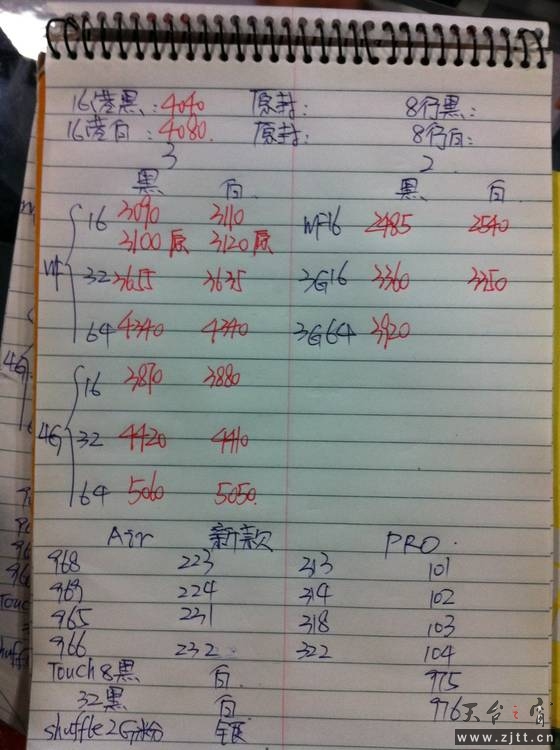 16港黑:4040 原封: 8行黑:
16港白:4080 原封: 8行白:
3 2
黑 白 黑 白
16 3090 3110 WF16 2485 2540
3100原 3120原
wf 32 3655 3635 3G16 3360 3350
64 4340 4340 3G64 3920
16 3870 3880
4G 32 4420 4410
64 5060 5050
Air 新款 PRO
968 223 313 101
969 224 314 102
965 231 318 103
966 232 322 104
Touch 8黑 白 975
32黑 白 976
shuffle 2G粉 银
天台之窗
www.zjtt.cn